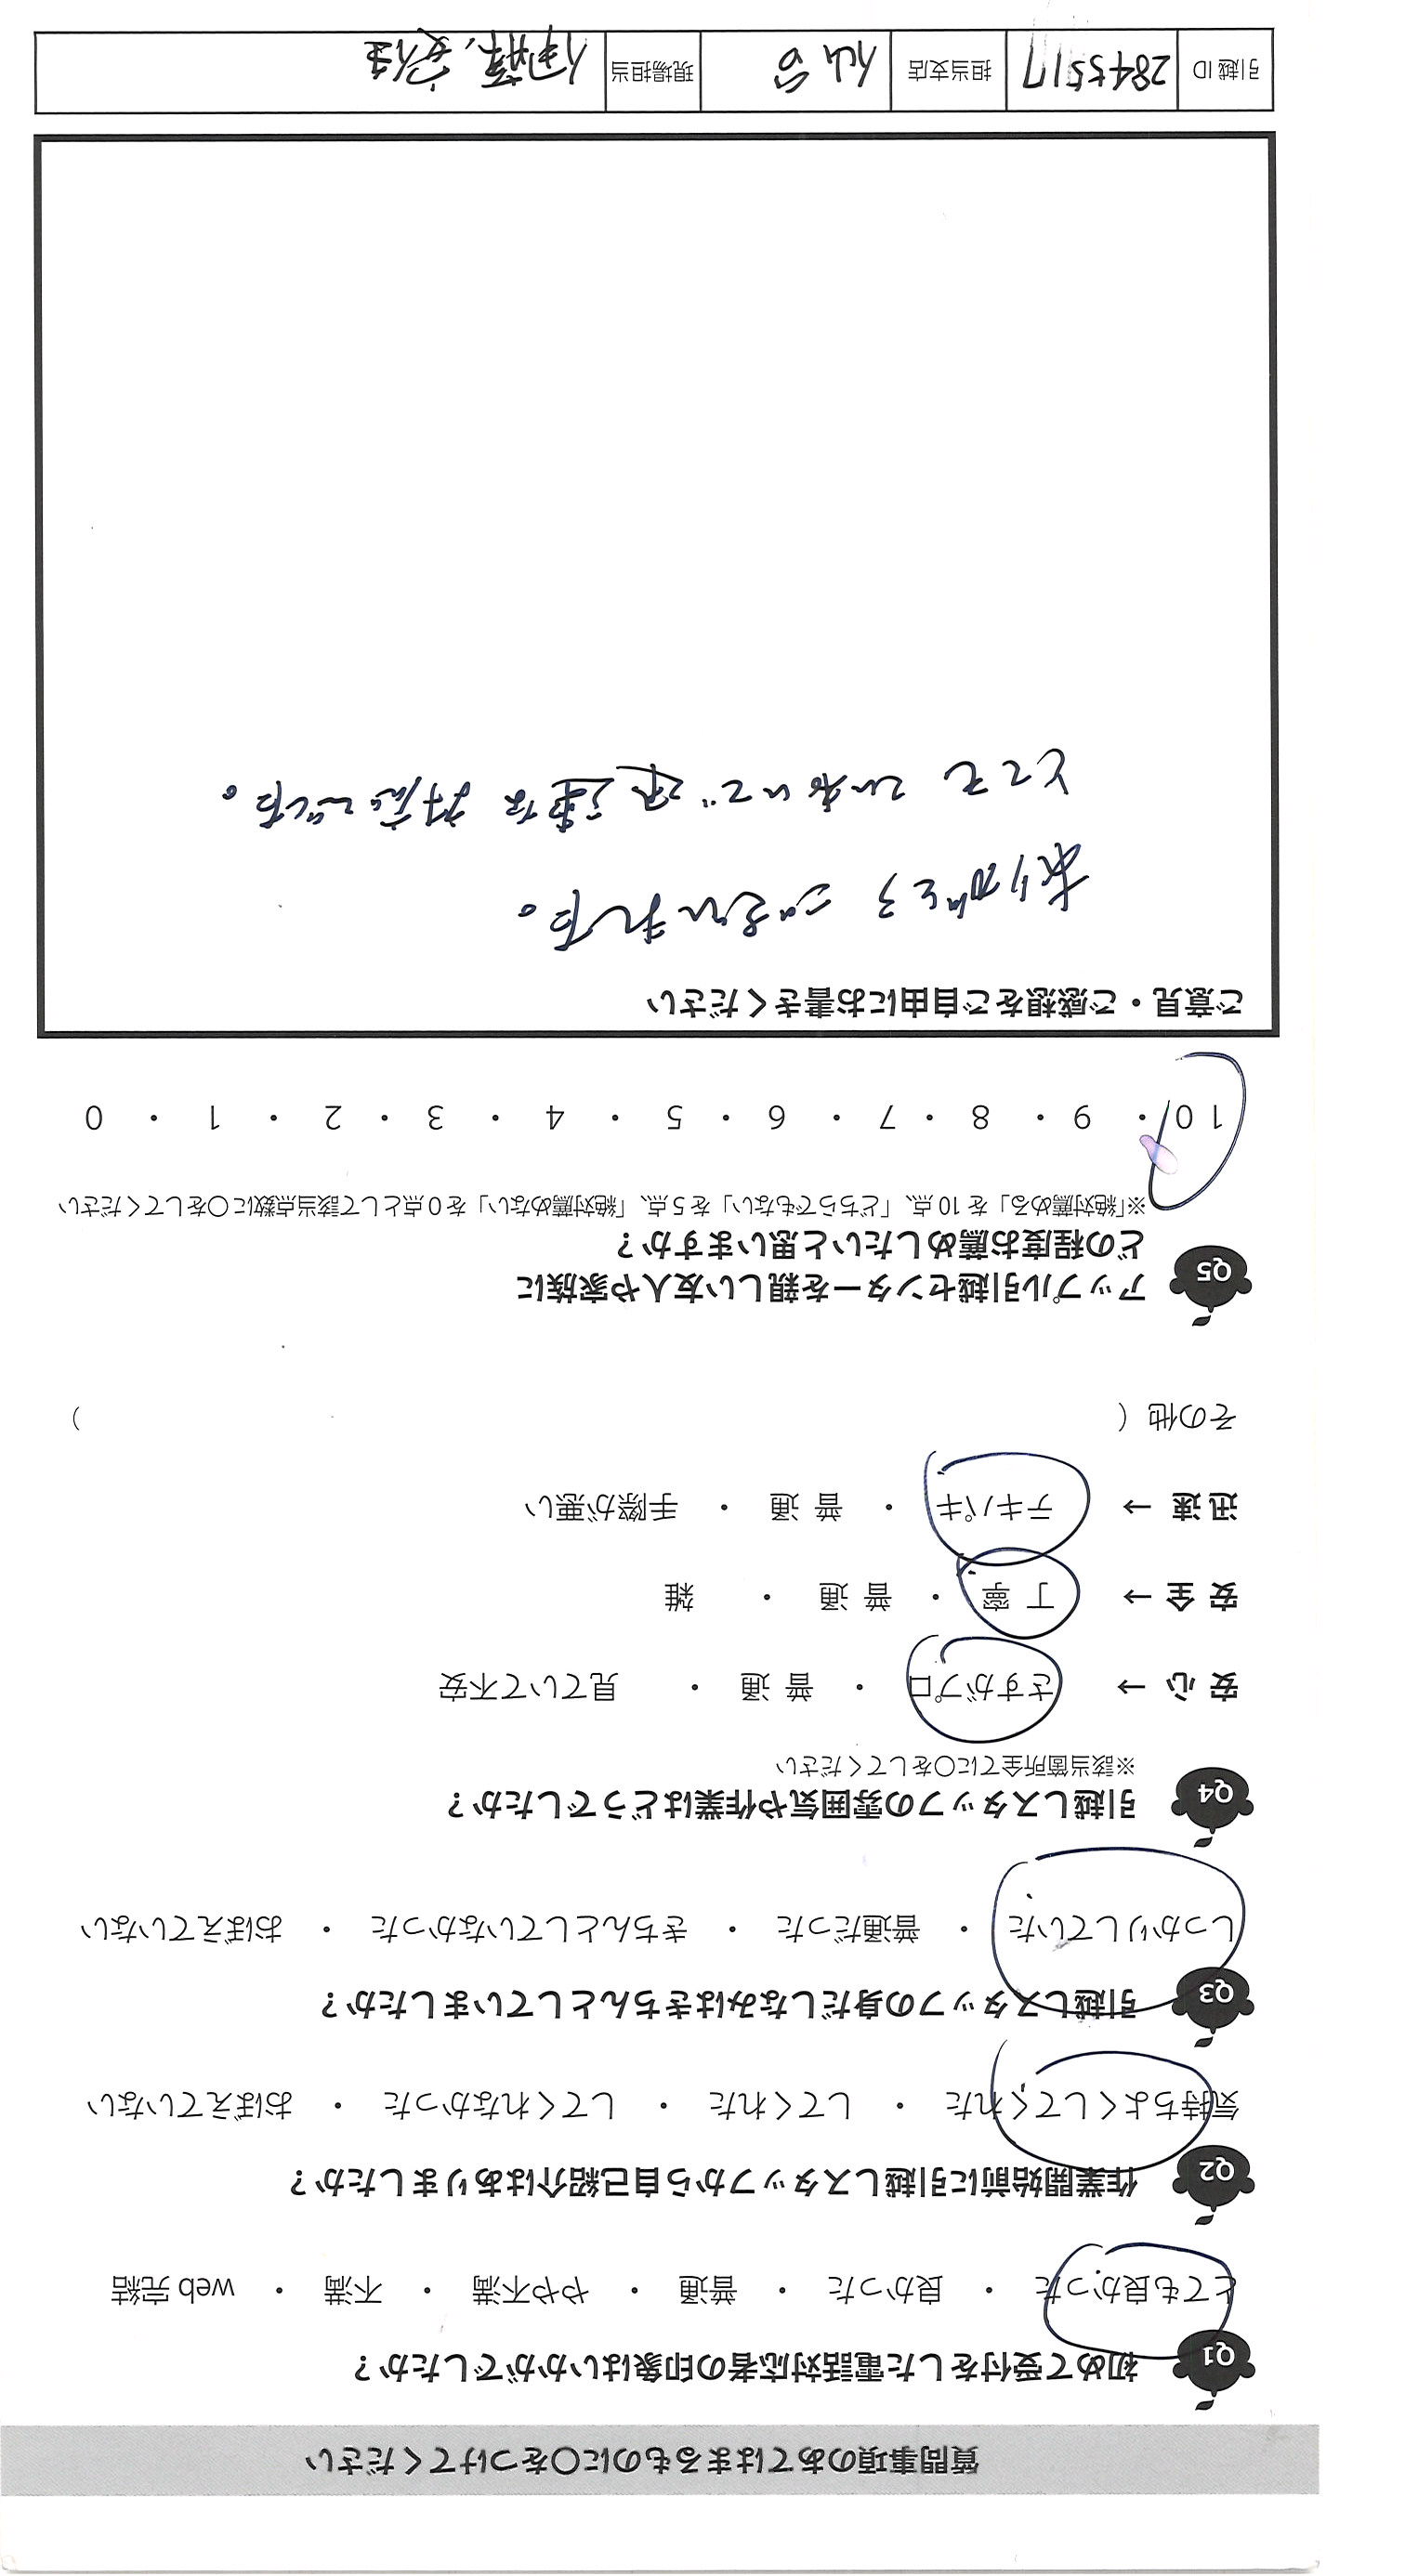 質問事項のあてはまるものに〇をつけてください
Q1 初めて受付をした電話対応者の印象はいかがでしたか？
とても良かった ・ 良かった ・ 普通 ・ やや不満 ・ 不満 ・ web 完結
Q2 作業開始前に引越しスタッフから自己紹介はありましたか？
気持ちよくしてくれた ・ してくれた ・ してくれなかった ・ おぼえていない
Q3 引越しスタッフの身だしなみはきちんとしていましたか？
しっかりしていた ・ 普通だった ・ きちんとしていなかった ・ おぼえていない
Q4 引越しスタッフの雰囲気や作業はどうでしたか？
※該当箇所全てに〇をしてください
安 心 → さすがプロ ・ 普 通 ・ 見ていて不安
安 全 → 丁 寧 ・ 普 通 ・ 雑
迅 速 → テキパキ ・ 普 通 ・ 手際が悪い
その他（ ）
Q5 アップル引越センターを親しい友人や家族に
どの程度お薦めしたいと思いますか？
※「絶対薦める」を 10 点、「どちらでもない」を 5 点、「絶対薦めない」を 0 点として該当点数に〇をしてください
10 ・ 9 ・ 8 ・ 7 ・ 6 ・ 5 ・ 4 ・ 3 ・ 2 ・ 1 ・ 0
ご意見・ご感想をご自由にお書きください
ありがとうございました。
とても ていねいで 迅速な 対応でした。
引越 ID 2845517 担当支店 仙台 現場担当